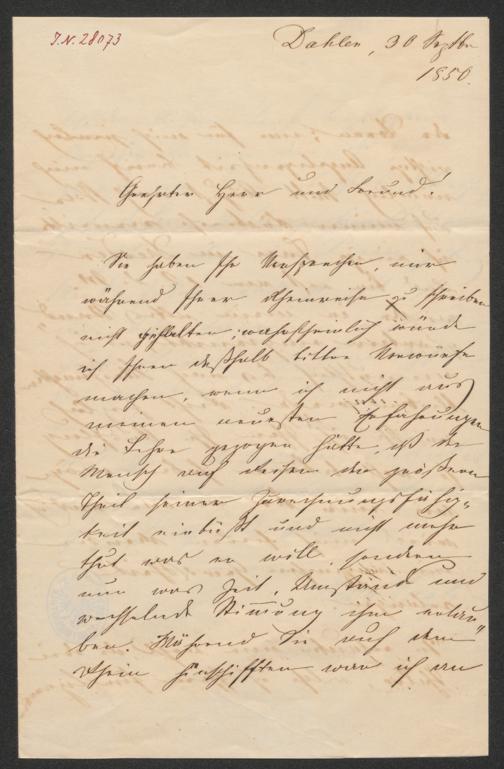 J.N. 28073
Dahlen, 30 Septbr
1850.
Geehrter Herr und Freund!
Sie haben Ihr Versprechen, mir
während Ihrer Rheinreise zu schreiben
nicht gehalten; wahrscheinlich würde
ich Ihnen deßhalb bittre Vorwürfe
machen, wenn ich nicht aus
meinen neuesten Erfahrungen
die Lehre gezogen hätte, daß der
Mensch auf Reisen den größern
Theil seiner Zurechnungsfähig-
keit einbüßt und nicht mehr
thut was er will, sondern
nur was Zeit, Umstände und
wechselnde Stimmung ihm erlau-
ben. Während Sie auf dem
Rhein hinschifften war ich an